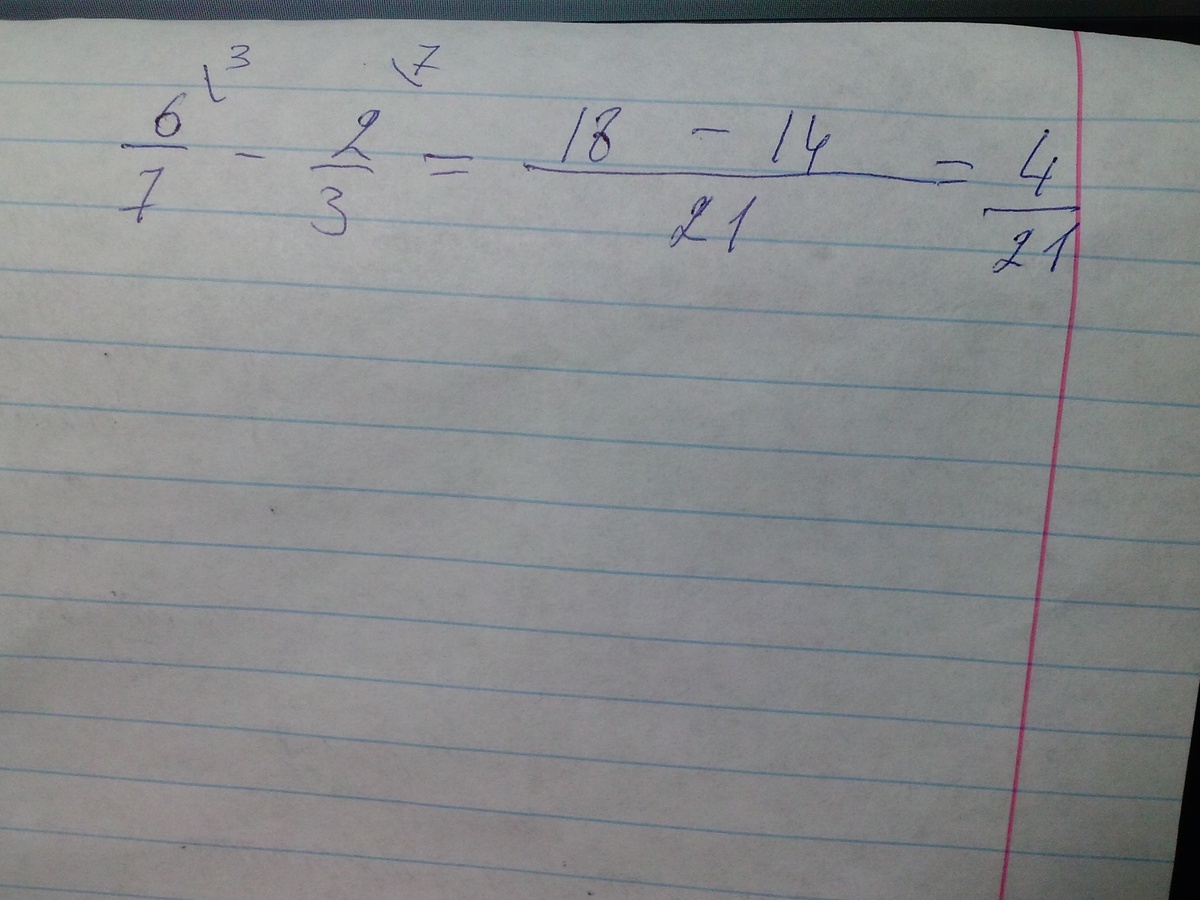 6/7 \3 - 2/3 \7 = (18 - 14)/21 = 4/21